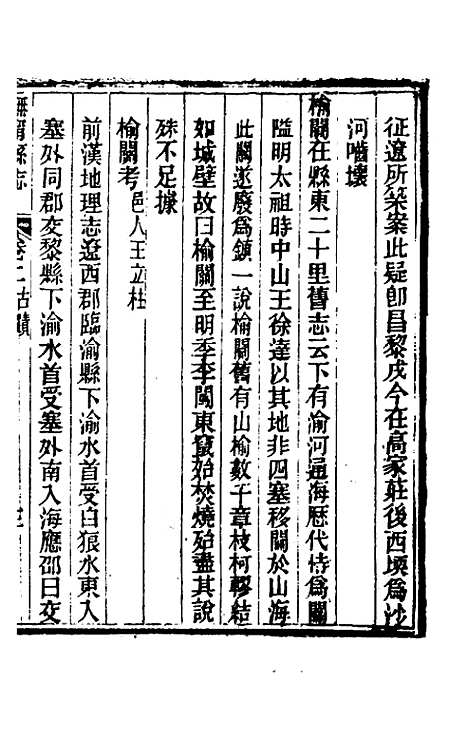 征遼所築案此疑卽昌黎戍今在高家莊後西壖爲沙
河嚙壞
榆關在縣東二十里舊志云下有渝河通海歷代恃爲關
隘明太祖時中山王徐達以其地非四塞移關於山海
此關遂廢爲鎮一說榆關舊有山榆數千章枝柯轇結
如城壁故曰榆關至明季李闖東竄始焚燒殆盡其說
殊不足據
榆關考邑人王立柱
前漢地理志遼西郡臨渝縣下渝水首受白狼水東入
塞外同郡交黎縣下渝水首受塞外南入海應邵曰交
撫甯縣志
卷二古蹟